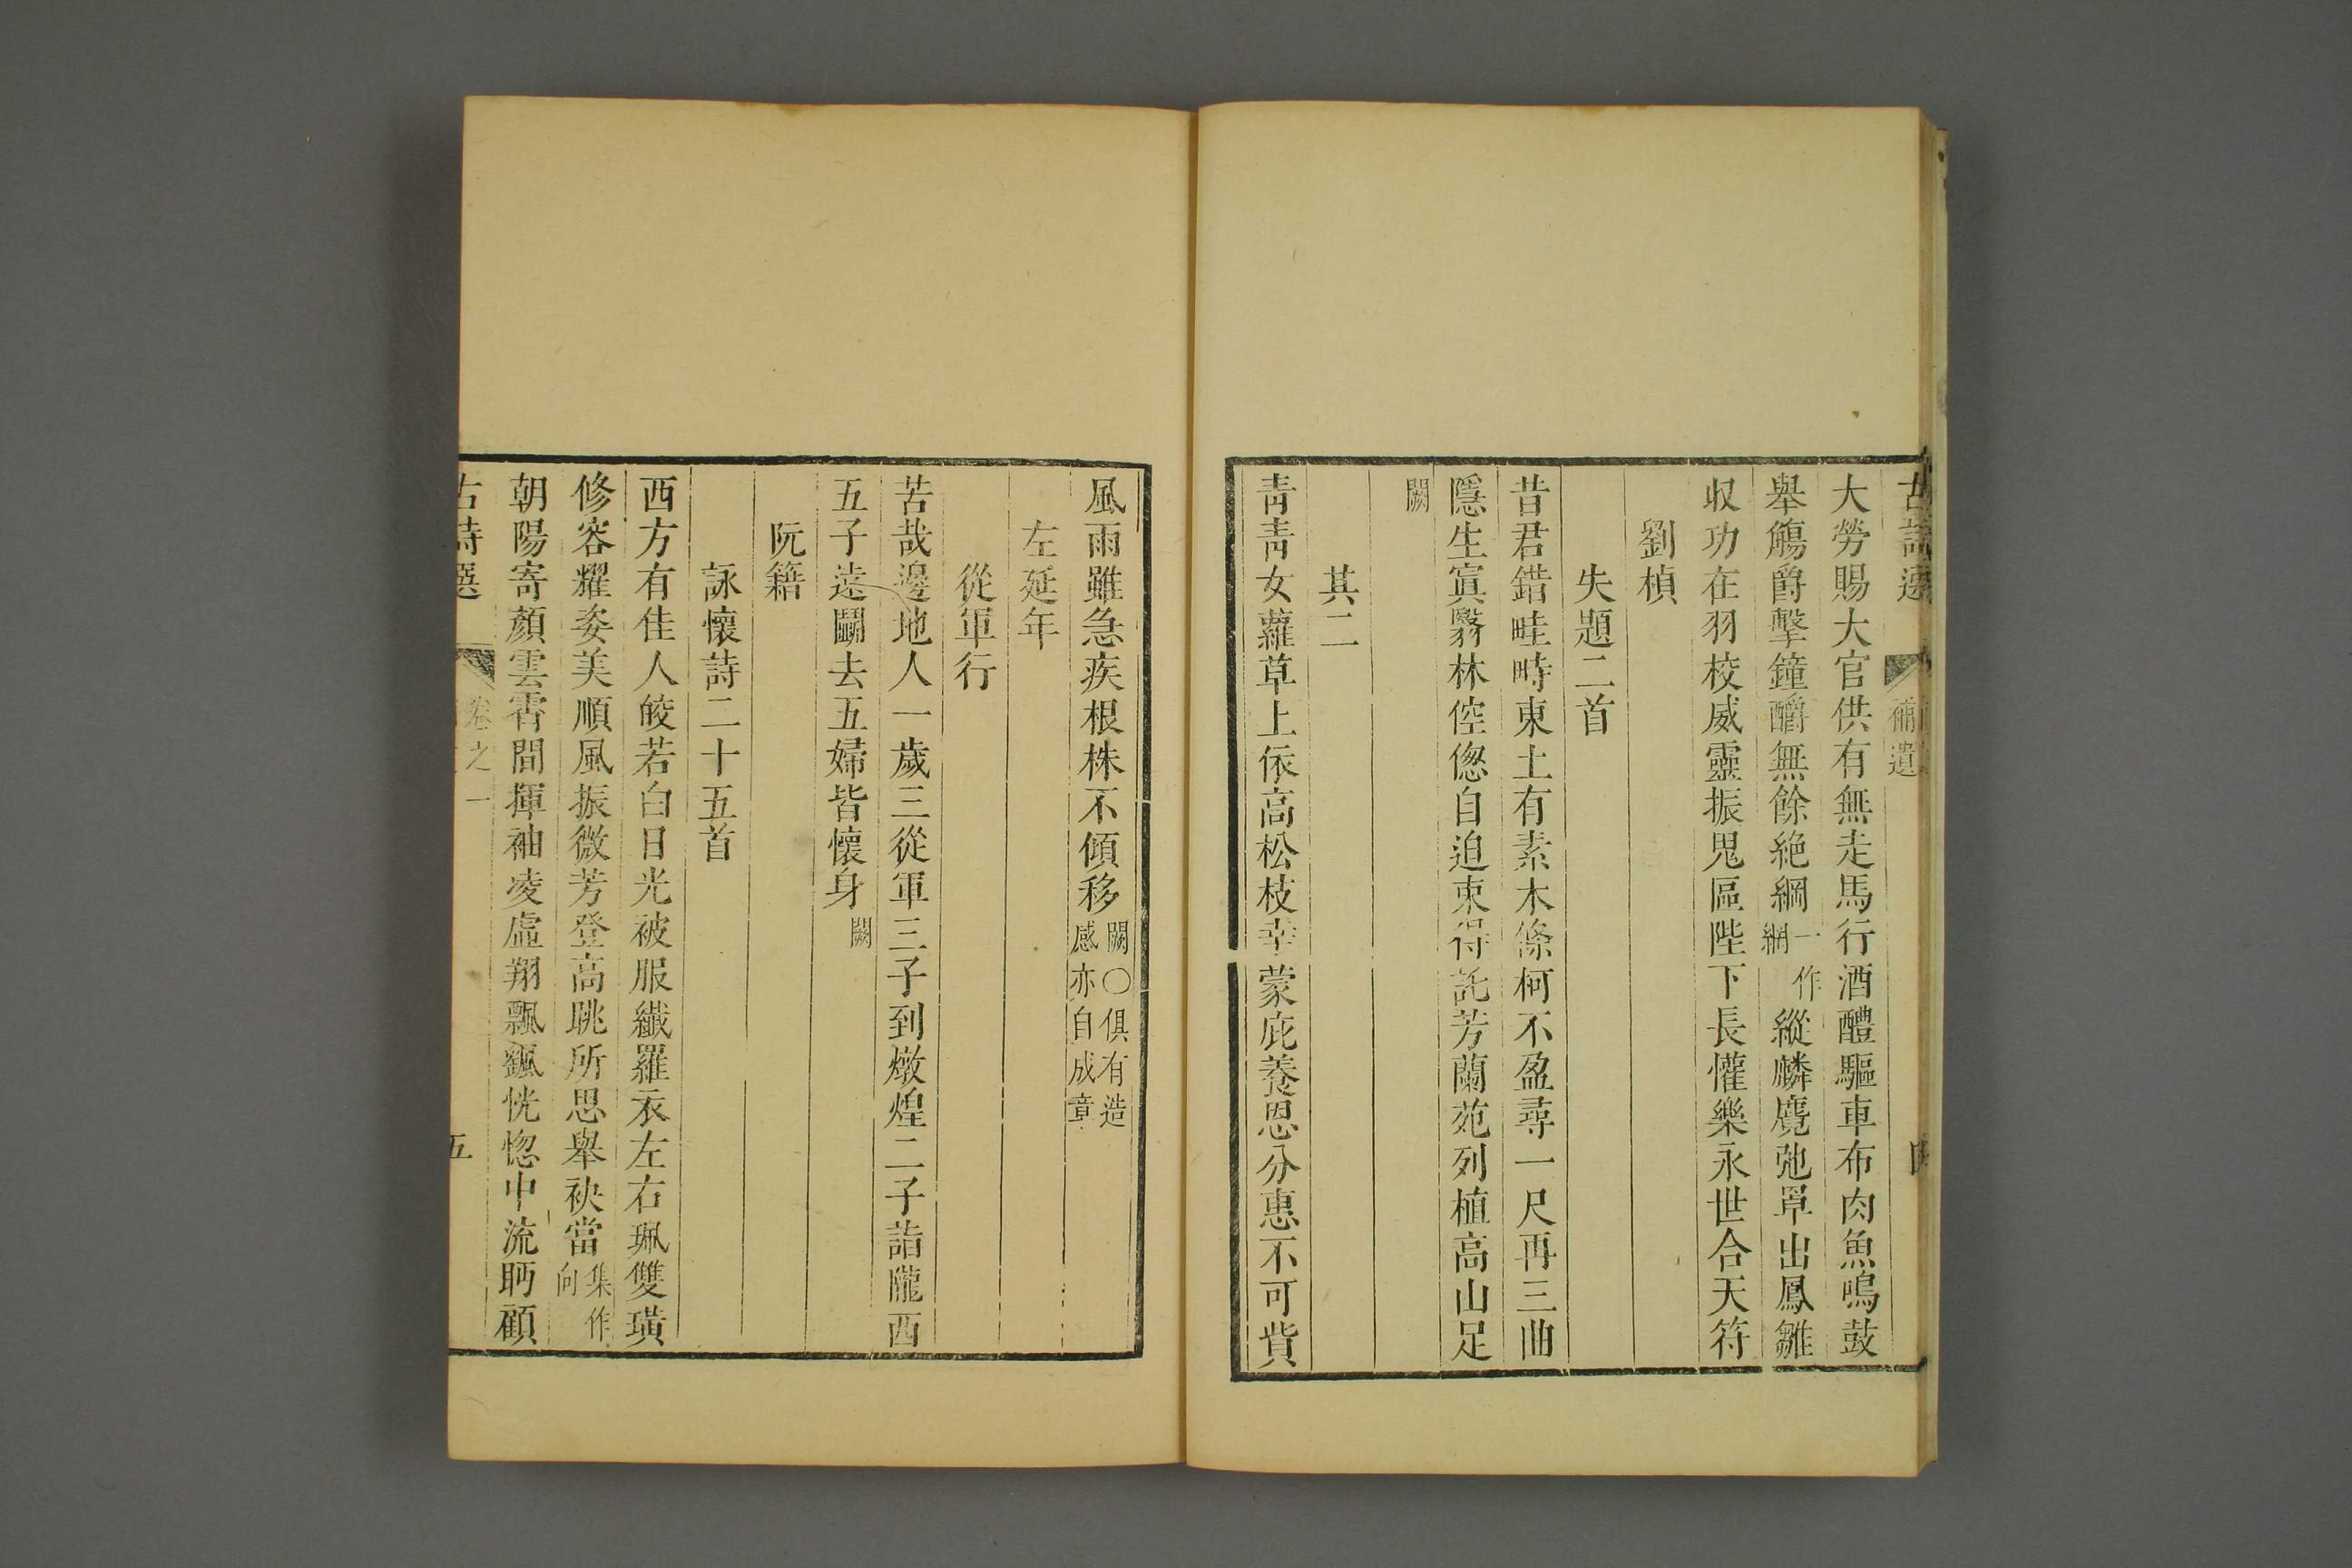 古詩選 補遺 四
大勞賜大官供有無走馬行酒醴驅車布肉魚鳴鼓
舉觴爵擊鐘釂無餘絶綱一作網縱麟麑弛罩出鳳雛
収功在羽校威靈振鬼區陛下長懽樂永世合天符
劉楨
失題二首
昔君錯畦畤東土有素木條柯不盈尋一尺再三曲
隱生寘翳林倥偬自迫束得託芳蘭苑列植高山足
闕
其二
靑靑女蘿草上依高松枝幸蒙庇養恩分惠不可貲
風雨雖急疾根株不傾移闕○俱有造感亦自成章
左延年
從軍行
苦哉邊地人一歲三從軍三子到燉煌二子詣隴西
五子遠鬭去五婦皆懷身闕
阮籍
詠懷詩二十五首
西方有佳人皎若白日光被服纖羅衣左右珮雙璜
修容耀姿美順風振微芳登高眺所思舉袂當集作向
朝陽寄顏雲霄間揮袖凌虛翔飄颻恍惚中流眄顧
古詩選 卷之一 五